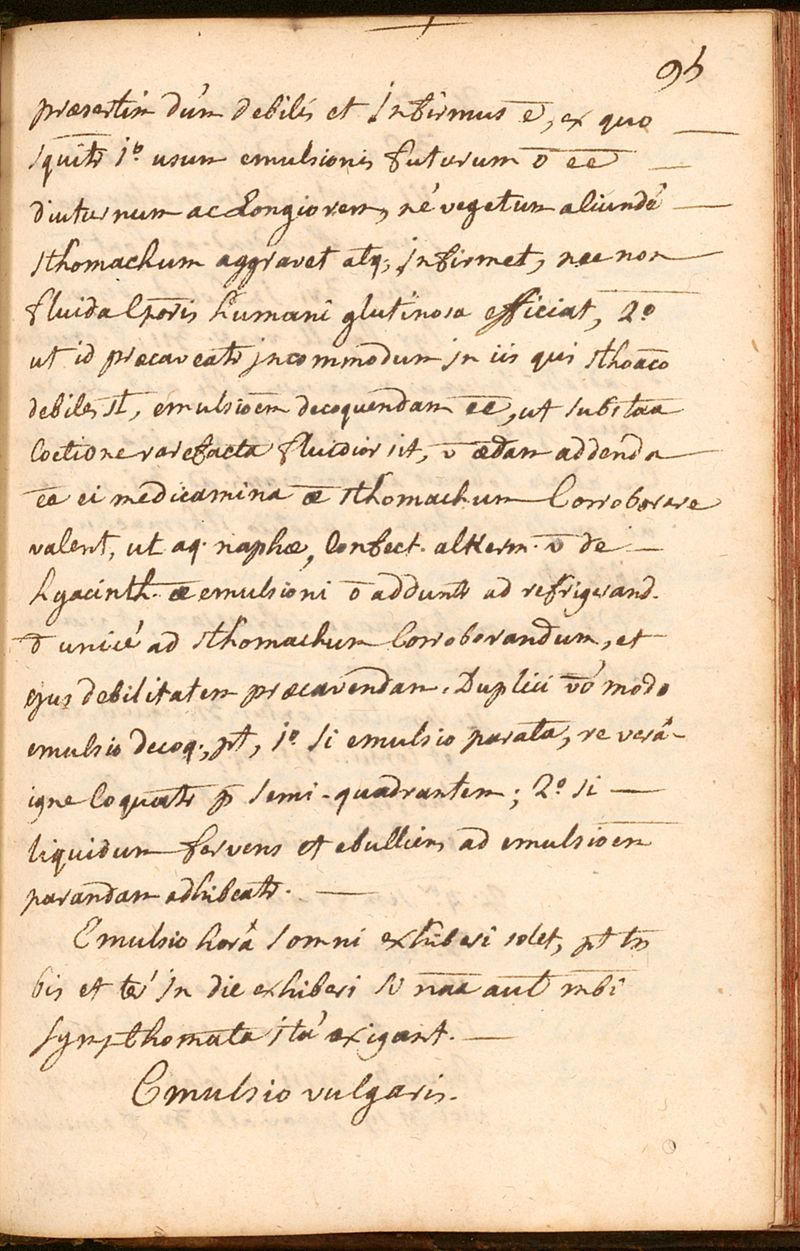 95
præsertim dúm debilis et infirmus ē, ex quo
squitr 1º usum emulsionis futurum ō ēē
diuturnum ac Longiorem, né vegetum aliundé
sthomachum aggravet atq; infirmet, nec non
fluida Cporis humani glutinosa efficiat, 2º
ut id præcaveatr jncommodum jn iis qui sthoaco
debiles st, emulsioem decoquendam ēē, ut substaa
Coctione rarefacta fluidior sit, v̄ ædam addenda
ēē ei medicamina æ sthomachum Corroborare
valent, ut aq. naphæ, Confect. alKerm. v̄ de
hyacinth. æ emulsioni ō adduntr ad refrigerand.
unicé ad sthomachum Corroborandum, et
ejus debilitatem præcavendam. Duplici vo modo
emulsio decoq;, pt, 1º si emulsio parata, re verâ
igne Coquatr p semi-quadrantem; 2º si
liquidum fervens et ebulliens ad emulsioem
parandam adhibeatr.
Emulsio horâ somni exhiberi solet, pt tn
bis et ter in die exhiberi si naa aut mbi
sympthomata ita exigant.
Emulsio vulgaris.